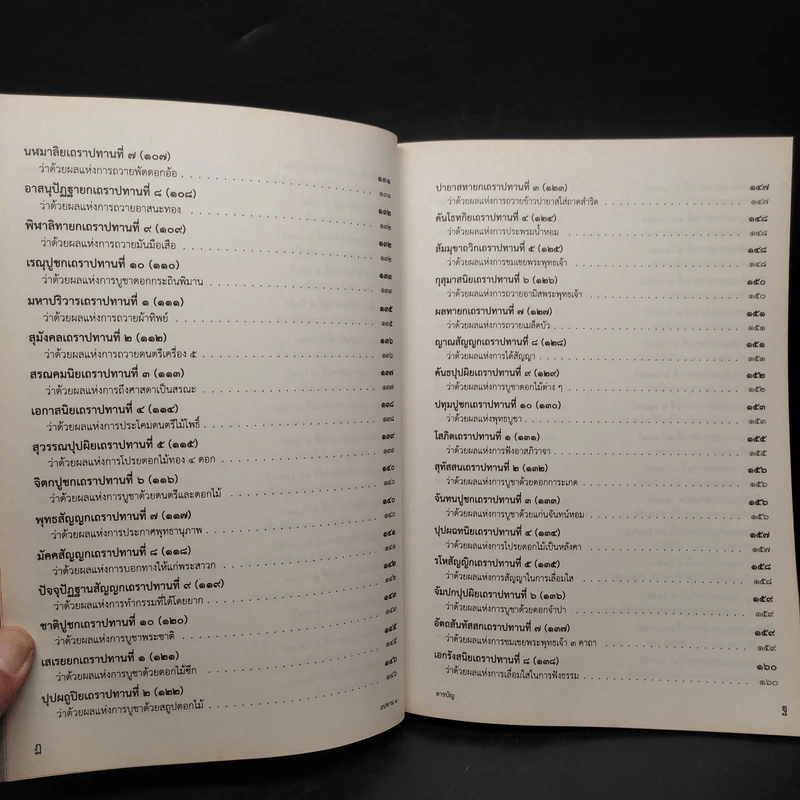 นฬมาลิยเถราปทานที่ ๗ (๑๐๗) ๑๓๑
ว่าด้วยผลแห่งการถวายพัดดอกอ้อ ๑๓๑
อาสนุปัฏฐายกเถราปทานที่ ๘ (๑๐๘) ๑๓๒
ว่าด้วยผลแห่งการถวายอาสนะทอง ๑๓๒
พิฬาลิทายกเถราปทานที่ ๙ (๑๐๙) ๑๓๒
ว่าด้วยผลแห่งการถวายมันมือเสือ ๑๓๒
เรณุปูชกเถราปทานที่ ๑๐ (๑๑๐) ๑๓๓
ว่าด้วยผลแห่งการบูชาดอกกระถินพิมาน ๑๓๓
มหาปริวารเถราปทานที่ ๑ (๑๑๑) ๑๓๕
ว่าด้วยผลแห่งการถวายผ้าทิพย์ ๑๓๕
สุมังคลเถราปทานที่ ๒ (๑๑๒) ๑๓๖
ว่าด้วยผลแห่งการถวายดนตรีเครื่อง ๕ ๑๓๖
สรณคมนิยเถราปทานที่ ๓ (๑๑๓) ๑๓๗
ว่าด้วยผลแห่งการถึงศาสดาเป็นสรณะ ๑๓๗
เอกาสนิยเถราปทานที่ ๔ (๑๑๔) ๑๓๘
ว่าด้วยผลแห่งการประโคมดนตรีไม้โพธิ์ ๑๓๘
สุวรรณปุปผิยเถราปทานที่ ๕ (๑๑๕) ๑๓๙
ว่าด้วยผลแห่งการโปรยดอกไม้ทอง ๔ ดอก ๑๓๙
จิตกปูชกเถราปทานที่ ๖ (๑๑๖) ๑๔๐
ว่าด้วยผลแห่งการบูชาด้วยดนตรีและดอกไม้ ๑๔๐
พุทธสัญญกเถราปทานที่ ๗ (๑๑๗) ๑๔๐
ว่าด้วยผลแห่งการประกาศพุทธานุภาพ ๑๔๐
มัคคสัญญกเถราปทานที่ ๘ (๑๑๘) ๑๔๑
ว่าด้วยผลแห่งการบอกทางให้แก่พระสาวก ๑๔๑
ปัจจุปัฏฐานสัญญกเถราปทานที่ ๙ (๑๑๙)
ว่าด้วยผลแห่งการทำกรรมที่ได้โดยยาก
ชาติปูชกเถราปทานที่ ๑๐ (๑๒๐)
ว่าด้วยผลแห่งการบูชาพระชาติ
เสเรยยกเถราปทานที่ ๑ (๑๒๑) ๑๔๕
ว่าด้วยผลแห่งการบูชาด้วยดอกไม้ซึก ๑๔๕
ปุปผถูปิยเถราปทานที่ ๒ (๑๒๒) ๑๔๖
ว่าด้วยผลแห่งการบูชาด้วยสถูปดอกไม้ ๑๔๖
อปทาน ๑
ฎ
ปายาสทายกเถราปทานที่ ๓ (๑๒๓) ๑๔๗
ว่าด้วยผลแห่งการถวายข้าวปายาสใส่ถาดสำริด ๑๔๗
คันโธทกิยเถราปทานที่ ๔ (๑๒๔) ๑๔๘
ว่าด้วยผลแห่งการประพรมน้ำหอม ๑๔๘
สัมมุขาถวิกเถราปทานที่ ๕ (๑๒๕) ๑๔๘
ว่าด้วยผลแห่งการชมเชยพระพุทธเจ้า ๑๔๘
กุสุมาสนิยเถราปทานที่ ๖ (๑๒๖) ๑๕๐
ว่าด้วยผลแห่งการถวายอามิสพระพุทธเจ้า ๑๕๐
ผลทายกเถราปทานที่ ๗ (๑๒๗) ๑๕๑
ว่าด้วยผลแห่งการถวายเมล็ดบัว ๑๕๑
ญาณสัญญกเถราปทานที่ ๘ (๑๒๘) ๑๕๑
ว่าด้วยผลแห่งการได้สัญญา ๑๕๑
คันธปุปผิยเถราปทานที่ ๙ (๑๒๙) ๑๕๒
ว่าด้วยผลแห่งการบูชาดอกไม้ต่าง ๆ ๑๕๒
ปทุมปูชกเถราปทานที่ ๑๐ (๑๓๐) ๑๕๓
ว่าด้วยผลแห่งพุทธบูชา ๑๕๓
โสภิตเถราปทานที่ ๑ (๑๓๑) ๑๕๕
ว่าด้วยผลแห่งการฟังอาสภิวาจา ๑๕๕
สุทัสสนเถราปทานที่ ๒ (๑๓๒) ๑๕๖
ว่าด้วยผลแห่งการบูชาด้วยดอกการะเกด ๑๕๖
จันทนปูชกเถราปทานที่ ๓ (๑๓๓) ๑๕๖
ว่าด้วยผลแห่งการบูชาด้วยแก่นจันทน์หอม ๑๕๖
ปุปผฉทนิยเถราปทานที่ ๔ (๑๓๔) ๑๕๗
ว่าด้วยผลแห่งการโปรยดอกไม้เป็นหลังคา ๑๕๗
รโหสัญญิกเถราปทานที่ ๕ (๑๓๕) ๑๕๘
ว่าด้วยผลแห่งการสัญญาในการเลื่อมใส ๑๕๘
จัมปกปุปผิยเถราปทานที่ ๖ (๑๓๖) ๑๕๙
ว่าด้วยผลแห่งการบูชาด้วยดอกจำปา ๑๕๙
อัตถสันทัสสกเถราปทานที่ ๗ (๑๓๗) ๑๕๙
ว่าด้วยผลแห่งการชมเชยพระพุทธเจ้า ๓ คาถา ๑๕๙
เอกรังสนิยเถราปทานที่ ๘ (๑๓๘) ๑๖๐
ว่าด้วยผลแห่งการเลื่อมใสในการฟังธรรม ๑๖๐
สารบัญ
ฐ